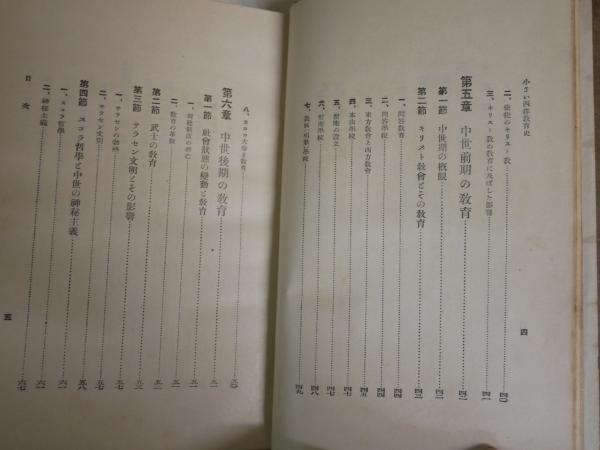 小さい西洋教育史
二、使徒のキリスト教…四〇
三、キリスト教の教育に及ぼした影響…四一
第五章 中世前期の教育…四二
第一節 中世期の概観…四二
第二節 キリスト教會とその教育…四三
一、問答教育…四四
二、問答學校…四四
三、東方教會と西方教會…四五
四、本山學校…四七
五、僧庵の設立…四七
六、僧庵學校…四八
七、
四九
四
八、
五〇
第六章 中世後期の教育…五一
第一節 社會狀態の變動と教育…五一
一、封建制度の
五一
二、教育の革新…五二
第二節 武士の教育…五三
第三節 サラセン文明とその影響…五五
一、サラセンの勃興…五七
二、サラセン文明…五七
第四節 スコラ哲學と中世の神秘主義…五八
一、スコラ哲學…六一
二、神秘主義…六一
六七
目次
五